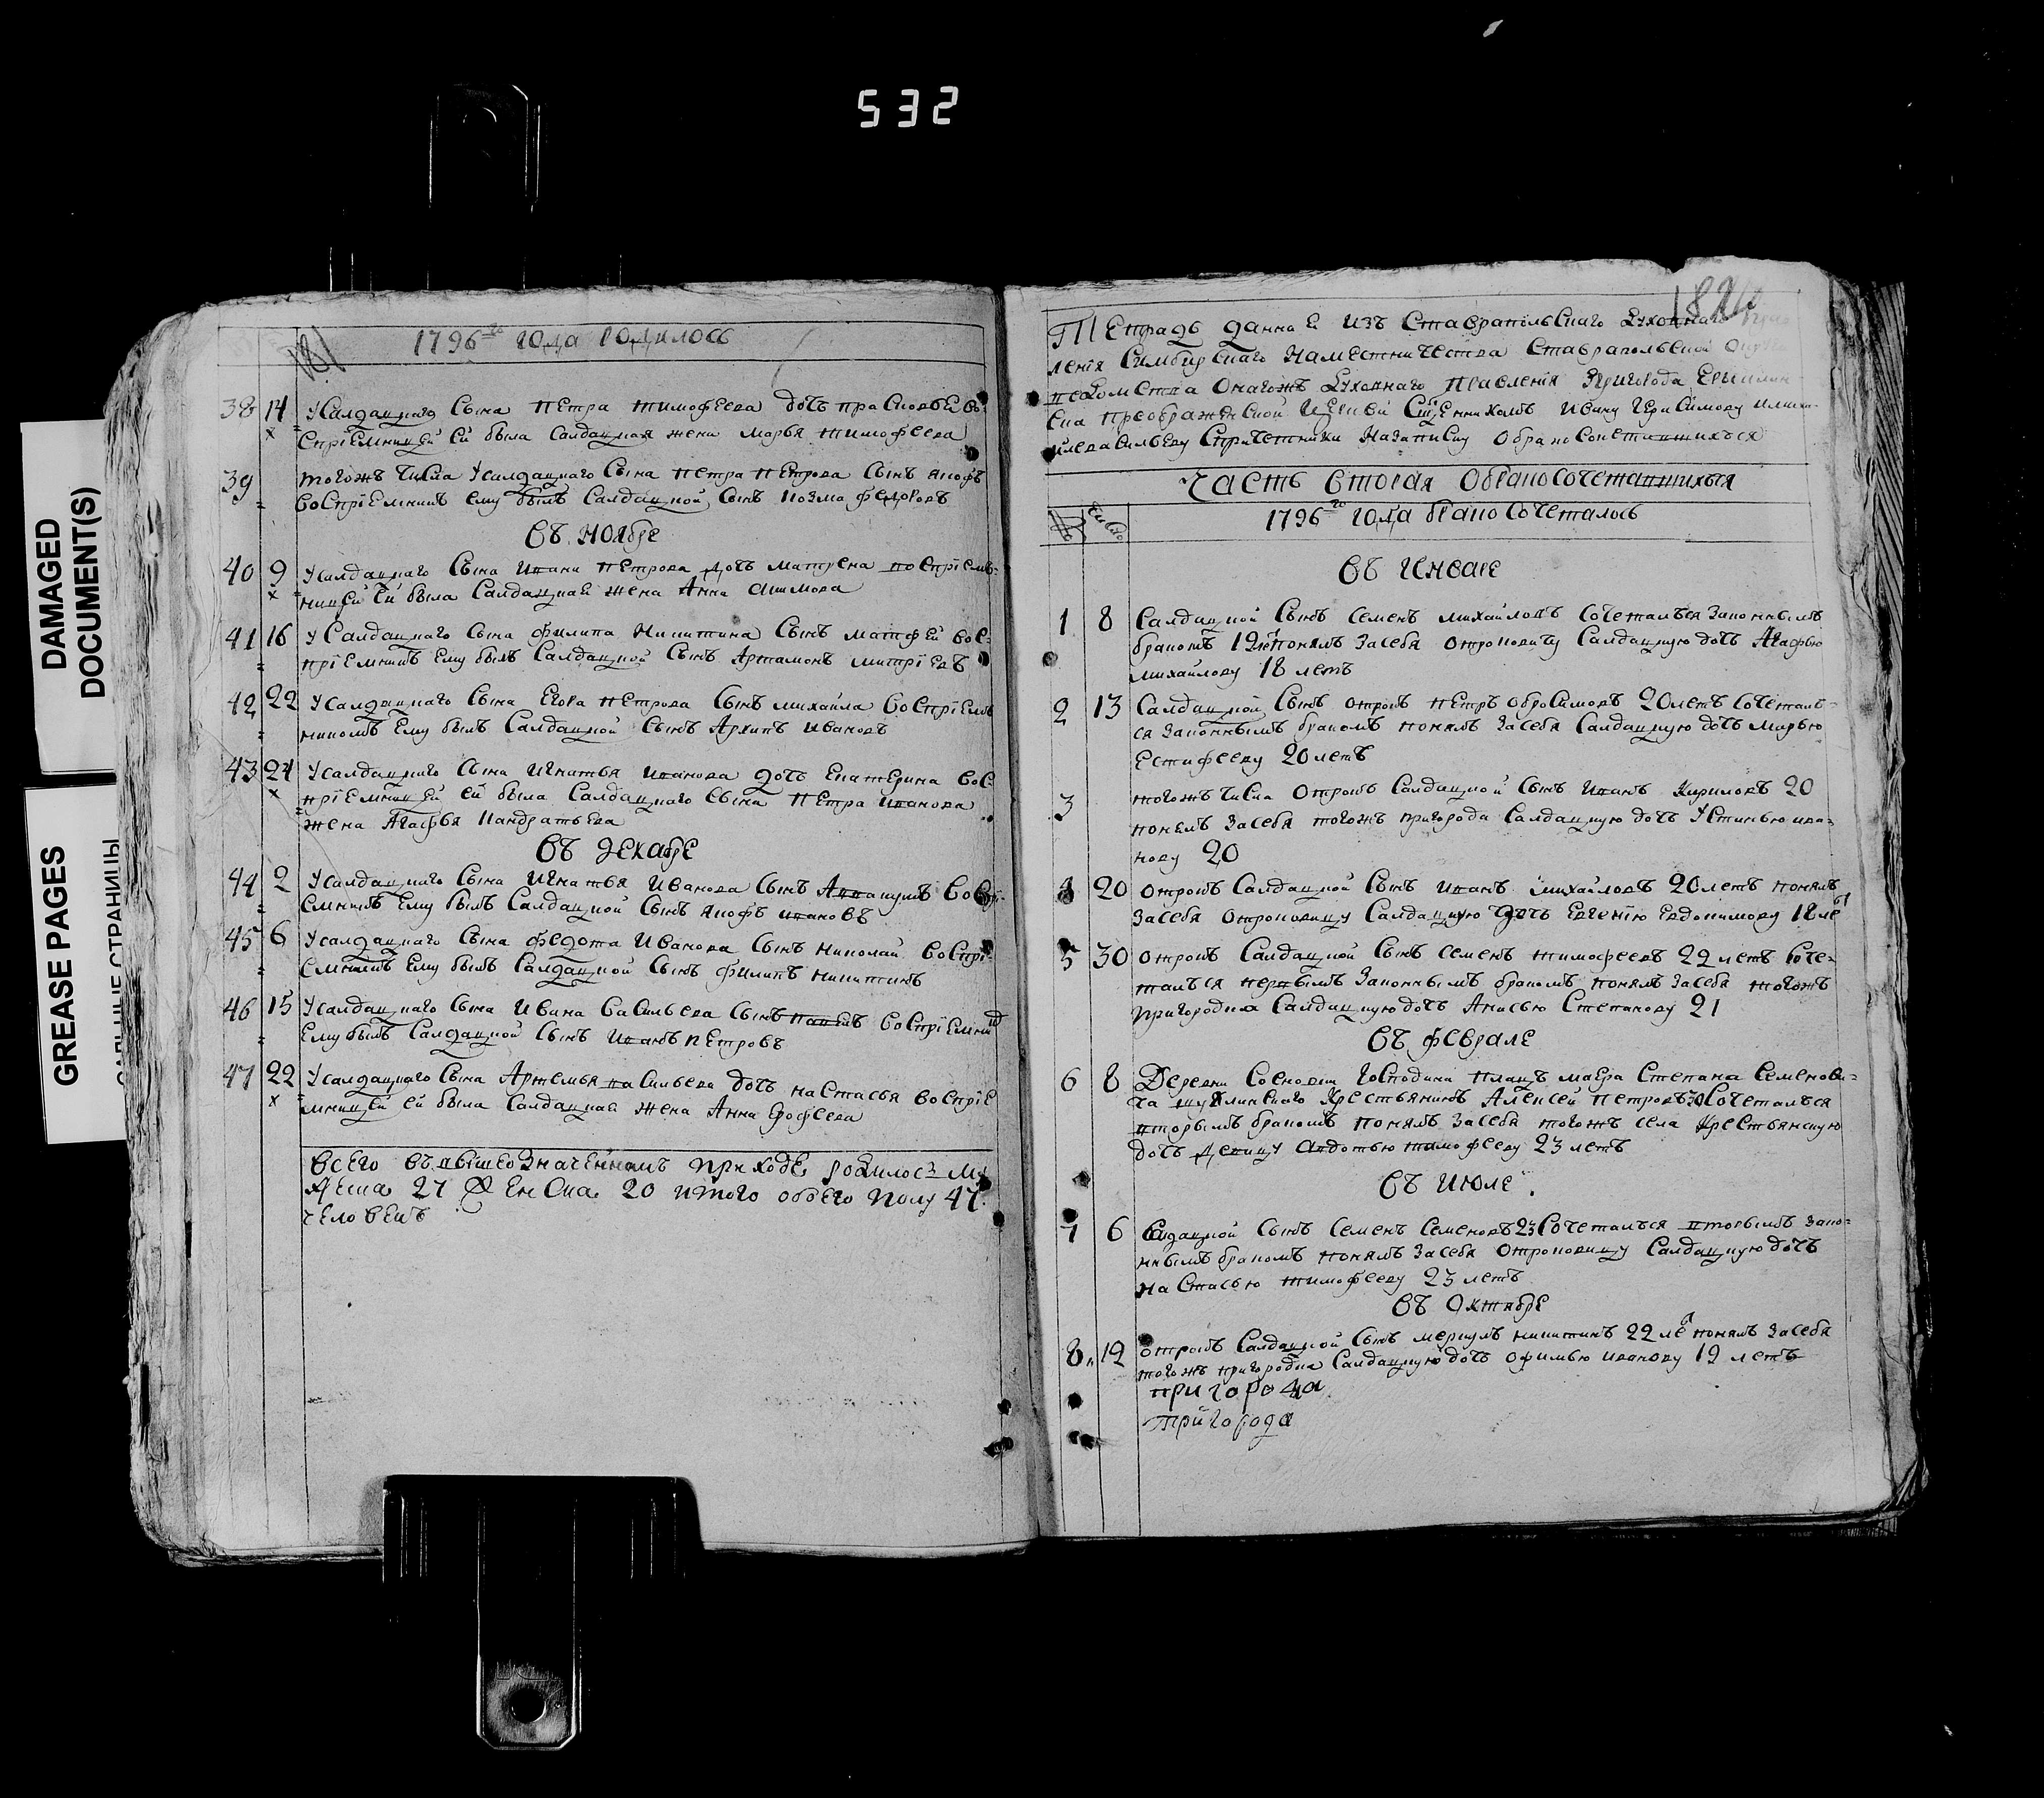 532
DAMAGED
DOCUMENT(S)
GREASE PAGES
181
1796го года родилось
38 14 У салдацкаго сына Петра Тимофеева дочь Прасковья во-
спрiемницей ей была салдацкая жена Марья Тимофеева
39 тогожъ числа У салдацкаго сына Петра Петрова сынъ Якофъ
воспрiемникъ ему былъ салдацкой сынъ Козма Федоровъ
Въ Ноябре
40 9 У салдацкаго сына Ивана Петрова дочь Матрена воспрiем-
ницей ей была салдацкая жена Анна
41 16 У Салдацкаго сына Филипа Никитина сынъ Матфей вос-
прiемникъ ему былъ салдацкой сынъ Артамонъ Митрiевъ
42 22 У салдацкаго сына Егора Петрова сынъ Михайла воспрiем
никомъ ему былъ салдацкой сынъ Архипъ Ивановъ
43 24 У салдацкаго сына Игнатья Иванова дочь Екатерина вос
прiемницей ей была салдацкаго сына Петра Иванова
жена Агафья Кандратьева
Въ Декабре
44 2 У салдацкаго сына Игнатья Иванова сынъ Аввакумъ воспрi-
емникъ ему былъ салдацкой сынъ Якофъ Ивановъ
45 6 У салдацкаго сына Федота Иванова сынъ Николай воспрi-
емникъ ему былъ салдацкой сынъ Филипъ Никитинъ
46 15 У салдацкаго сына Ивана Васильева сынъ Павелъ воспрiемник
ему былъ салдацкой сынъ Иванъ Петровъ
47 22 У салдацкаго сына Артемья Васильева дочь Настасья воспрiе
мницей ей была салдацкая жена Анна Ерофеева
Всего въ вышеозначенномъ приходе родилось му
жеска 27 женска 20 итого обоего полу 47
человекъ
182
Тетрадь данная изъ Ставрапольскаго Духовнаго
ленiя Симбирскаго Наместничества Ставрапольской
ведомства онагожъ Духовнаго Правления Пригорода
ска Преображенской церкви Священникомъ Ивану Герасимову
Васильеву спричетники на записку о бракосочетавшихся
Часть вторая о бракосочетавшихся
№ число
1796го года бракосочеталось
Въ Инваре
1 8 Салдацкой сынъ Семенъ Михайловъ сочетался законнымъ
бракомъ понялъ за себя отроковицу салдацкую дочь Агафью
Михайлову 18 летъ
2 13 Салдацкой сынъ отрокъ Петръ Обросимовъ 20 летъ сочетал-
ся законнымъ бракомъ понялъ за себя салдацкую дочь Марью
Естифееву 20 летъ
3 тогожъ числа отрокъ салдацкой сынъ Иванъ Кириловъ 20
понелъ за себя тогожъ пригорода салдацкую дочь Устинью Ива-
нову 20
4 20 отрокъ салдацкой сынъ Иванъ Михайловъ 20 летъ понялъ
за себя отроковицу салдацкую дочь Евгению Евдокимову 18 ле
5 30 отрокъ салдацкой сынъ Семенъ Тимофеевъ 22 летъ соче-
тался первымъ законнымъ бракомъ понялъ за себя тогожъ
пригородка салдацкую дочь Анисью Степанову 21
Въ Феврале
6 8 Деревни Сосновки Господина Плацъ маера Степана Семенови-
ча крестьянинъ Алексей Петровъ 30 сочетался
вторымъ бракомъ понялъ за себя тогожъ села крестьянскую
дочь девицу Авдотью Тимофееву 23 летъ
Въ Июле
7 6 Салдацкой сынъ Семенъ Семеновъ 23 сочетался вторымъ зако-
ннымъ бракомъ понялъ за себя отроковицу салдацкую дочь
Настасью Тимофееву 23 летъ
Въ Октябре
8 12 отрокъ салдацкой сынъ Меркулъ Никитинъ 22 ле понялъ за себя
тогожъ пригородка салдацкую дочь Офимью Иванову 19 летъ
пригорода
пригорода